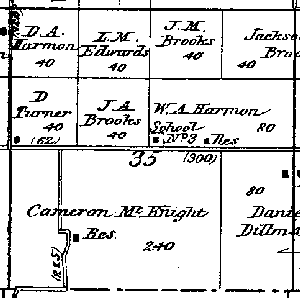 D. A.
Harmon
40
L. M.
Edwards
40
J. M.
Brooks
40
40
D
Turner
40
(62)
J. A
Brooks
40
W. A. Harmon
School
Nº 3
Res
80
35
(300)
Cameron Mc Knight
Res.
240
(225)
80